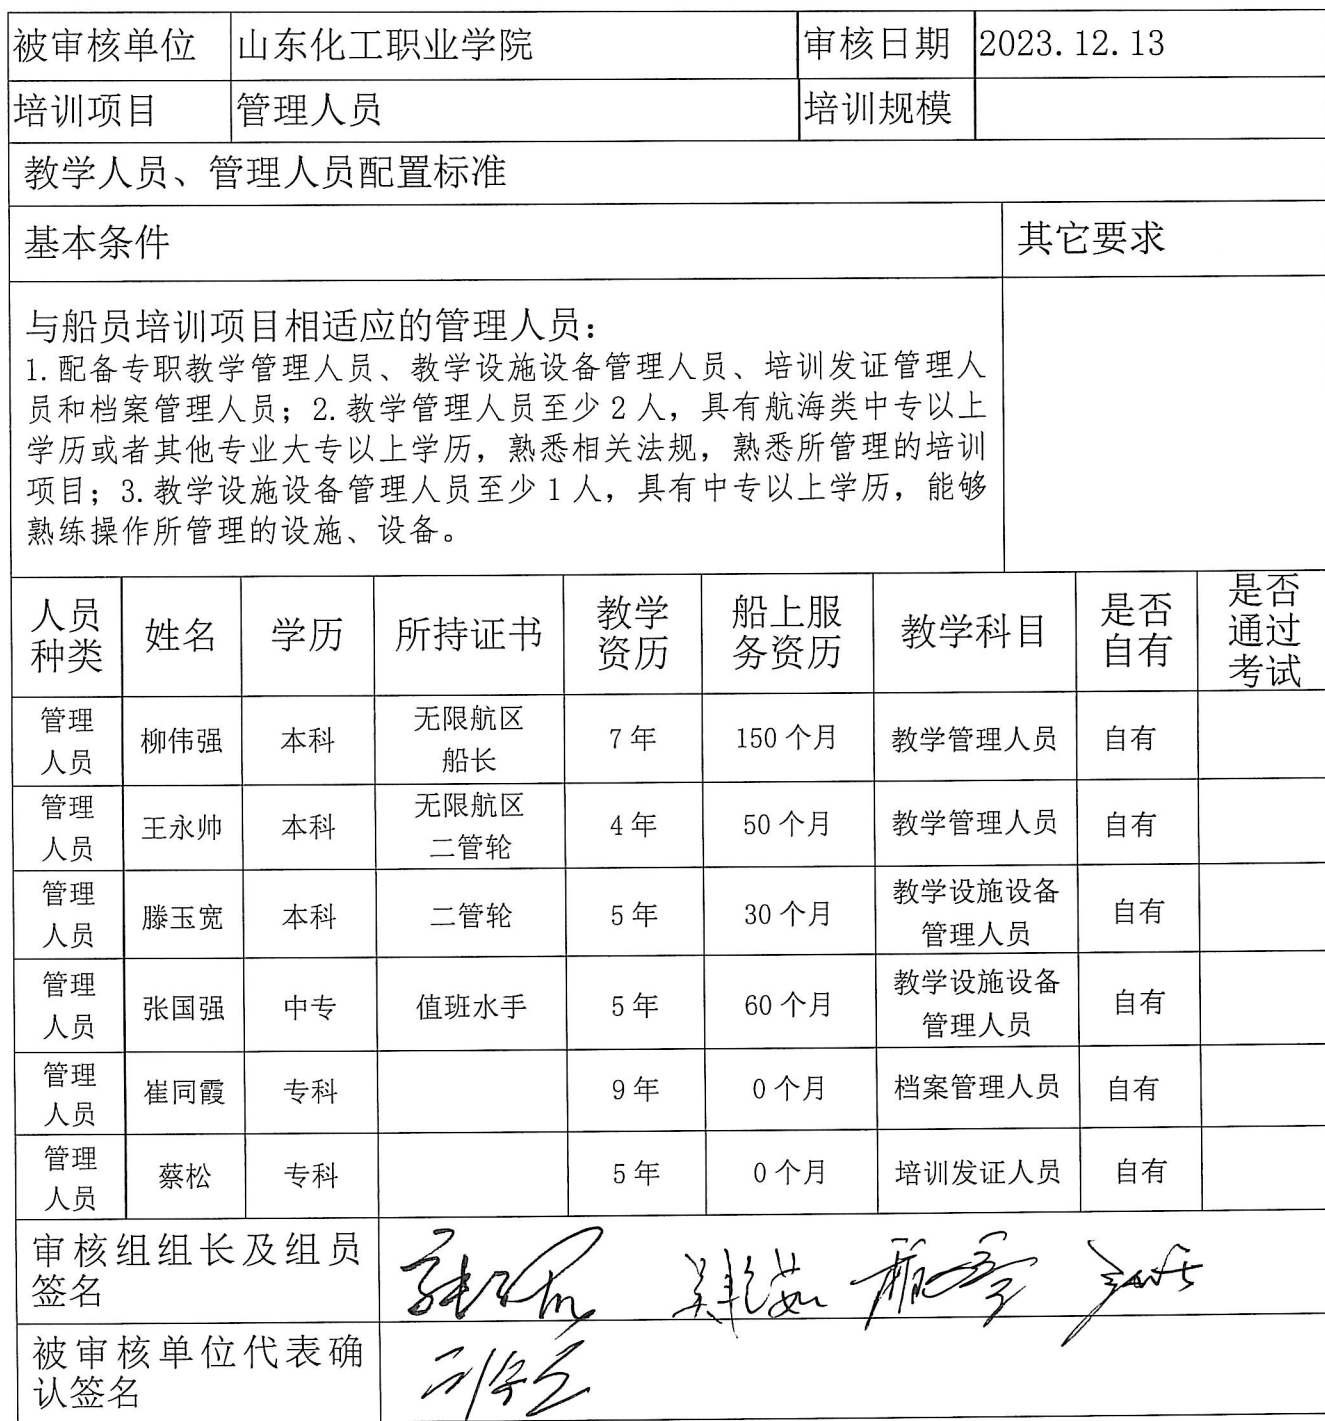 被审核单位 山东化工职业学院 审核日期 2023.12.13
培训项目 管理人员 培训规模
教学人员、管理人员配置标准
基本条件 其它要求
与船员培训项目相适应的管理人员：
1.配备专职教学管理人员、教学设施设备管理人员、培训发证管理人
员和档案管理人员；2.教学管理人员至少2人，具有航海类中专以上
学历或者其他专业大专以上学历，熟悉相关法规，熟悉所管理的培训
项目；3.教学设施设备管理人员至少1人，具有中专以上学历，能够
熟练操作所管理的设施、设备。
人员种类 姓名 学历 所持证书 教学资历 船上服务资历 教学科目 是否自有 是否通过考试
管理人员 柳伟强 本科 无限航区船长 7年 150个月 教学管理人员 自有
管理人员 王永帅 本科 无限航区二管轮 4年 50个月 教学管理人员 自有
管理人员 滕玉宽 本科 二管轮 5年 30个月 教学设施设备管理人员 自有
管理人员 张国强 中专 值班水手 5年 60个月 教学设施设备管理人员 自有
管理人员 崔同霞 专科 9年 0个月 档案管理人员 自有
管理人员 蔡松 专科 5年 0个月 培训发证人员 自有
审核组组长及组员
签名
被审核单位代表确
认签名